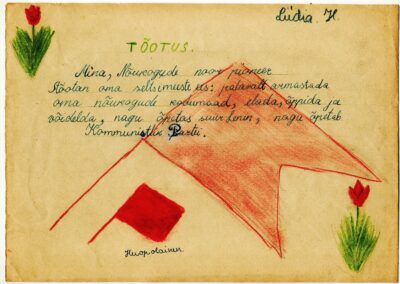 Lüdia. H.
TÕOTUS.
Mina, Nõukogude noor pioneer
tõotan oma seltsimustele: palavalt armastada
oma nõukogude kodumaad, elada, õppida ja
võidelda, nagu õpetas suur Lenin, nagu õpetab
Kommunistlik Partei.